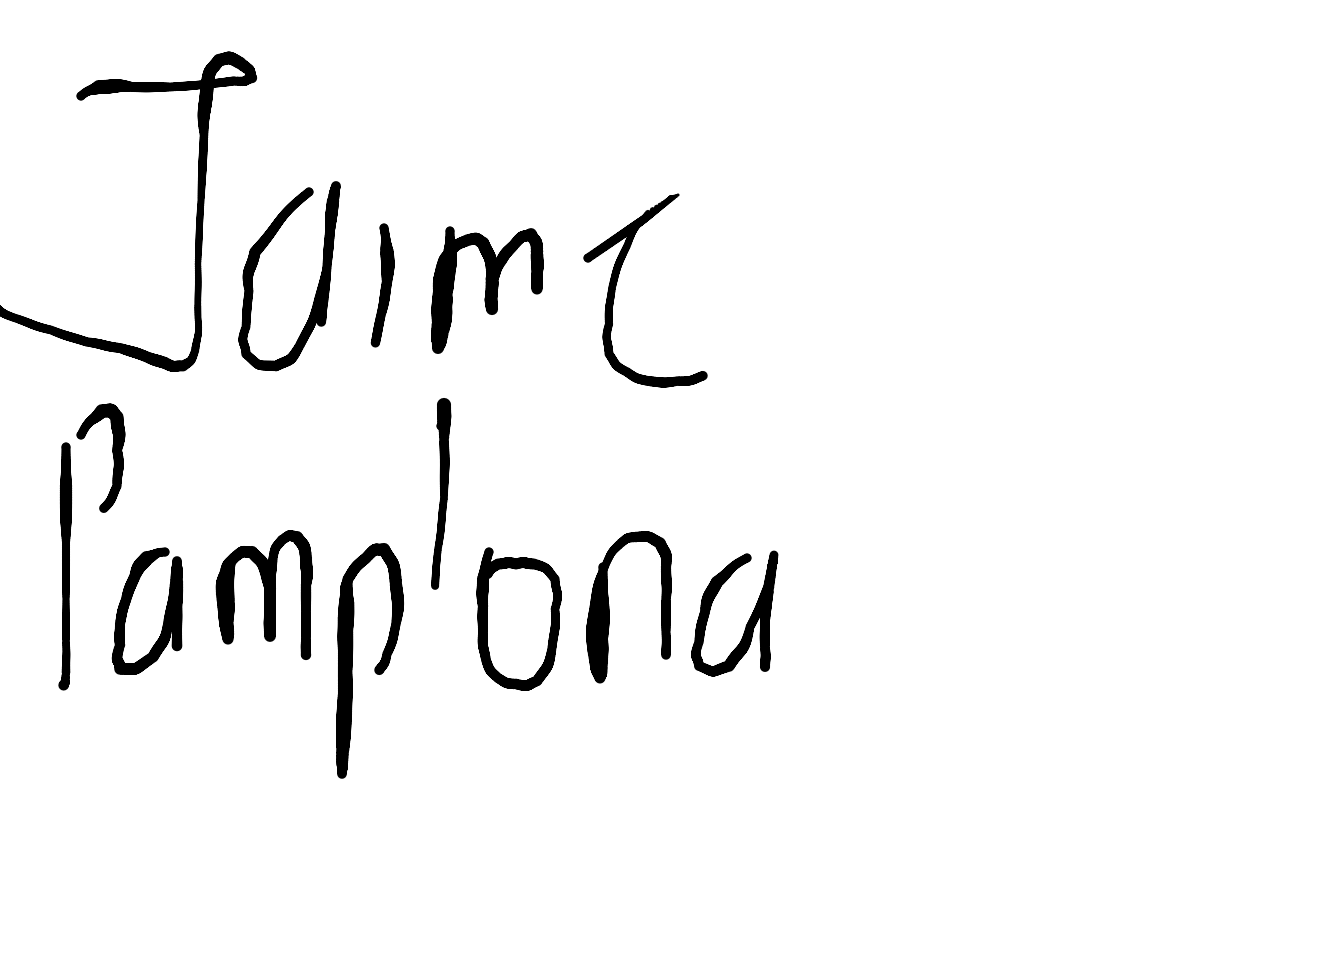 Jaime
Pamplona